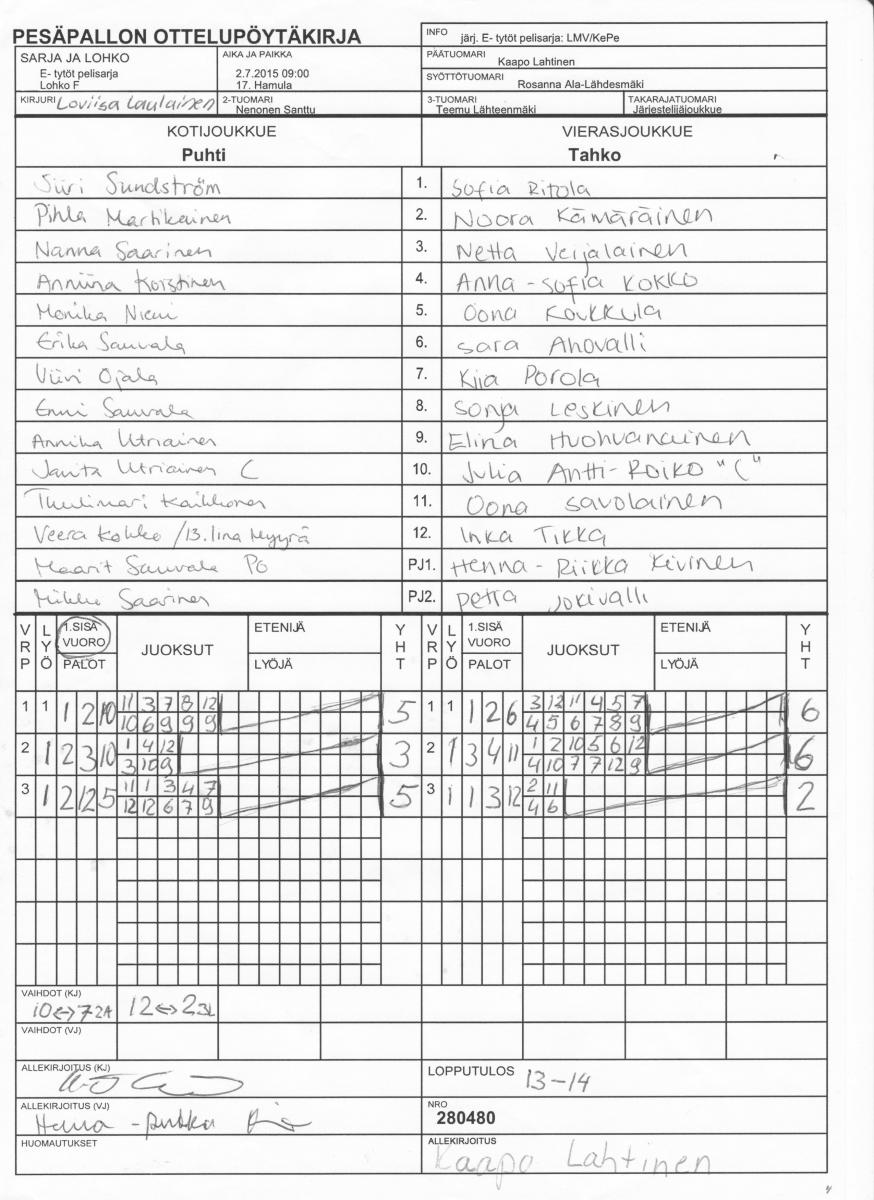 PESÄPALLON OTTELUPÖYTÄKIRJA
INFO järj. E- tytöt pelisarja: LMV/KePe
SARJA JA LOHKO
E- tytöt pelisarja
Lohko F
AIKA JA PAIKKA
2.7.2015 09:00
17. Hamula
PÄÄTUOMARI
Kaapo Lahtinen
SYÖTTÖTUOMARI
Rosanna Ala-Lähdesmäki
KIRJURI Loviisa Laulainen
2-TUOMARI
Nenonen Santtu
3-TUOMARI
Teemu Lähteenmäki
TAKARAJATUOMARI
Järjestelijäjoukkue
KOTIJOUKKUE VIERASJOUKKUE
Puhti Tahko
Siiri Sundström 1. Sofia Ritola
Pihla Martikainen 2. Noora Kämäräinen
Nanna Saarinen 3. Netta Veijalainen
Anniina Korstinen 4. Anna-Sofia Kokko
Monika Niemi 5. Oona Koukkula
Erika Sauvala 6. Sara Ahovalli
Viivi Ojala 7. Kiia Porola
Enni Sauvala 8. Sonja Leskinen
Annika Utriainen 9. Elina Huohvanainen
Janita Utriainen C 10. Julia Antti-Roiko "C"
Tuulimari Kaikkonen 11. Oona Savolainen
Veera Kokko /13. Iina Myyrä 12. Inka Tikka
Maarit Sauvala PJ1. Henna-Riikka Kivinen
Mikko Saarinen PJ2. Petra Jokivalli
VRP LYÖ 1.SISÄ VUORO PALOT JUOKSUT ETENIJÄ LYÖJÄ YHT VRP LYÖ 1.SISÄ VUORO PALOT JUOKSUT ETENIJÄ LYÖJÄ YHT
1 1 1 2 10 11 3 7 8 12 5 1 1 1 2 6 3 12 11 4 5 7 6
10 6 9 9 9 4 5 6 7 8 9
2 1 2 3 10 1 4 12 3 2 1 3 4 11 1 2 10 5 6 12 6
3 10 9 4 10 7 7 12 9
3 1 2 12 5 11 1 3 4 7 5 3 1 1 3 12 2 11 2
12 12 6 7 9 4 6
VAIHDOT (KJ)
10<->7 2A 12<->2 3L
VAIHDOT (VJ)
ALLEKIRJOITUS (KJ)
LOPPUTULOS 13-14
ALLEKIRJOITUS (VJ)
Henna-
NRO
280480
HUOMAUTUKSET
ALLEKIRJOITUS
Kaapo Lahtinen